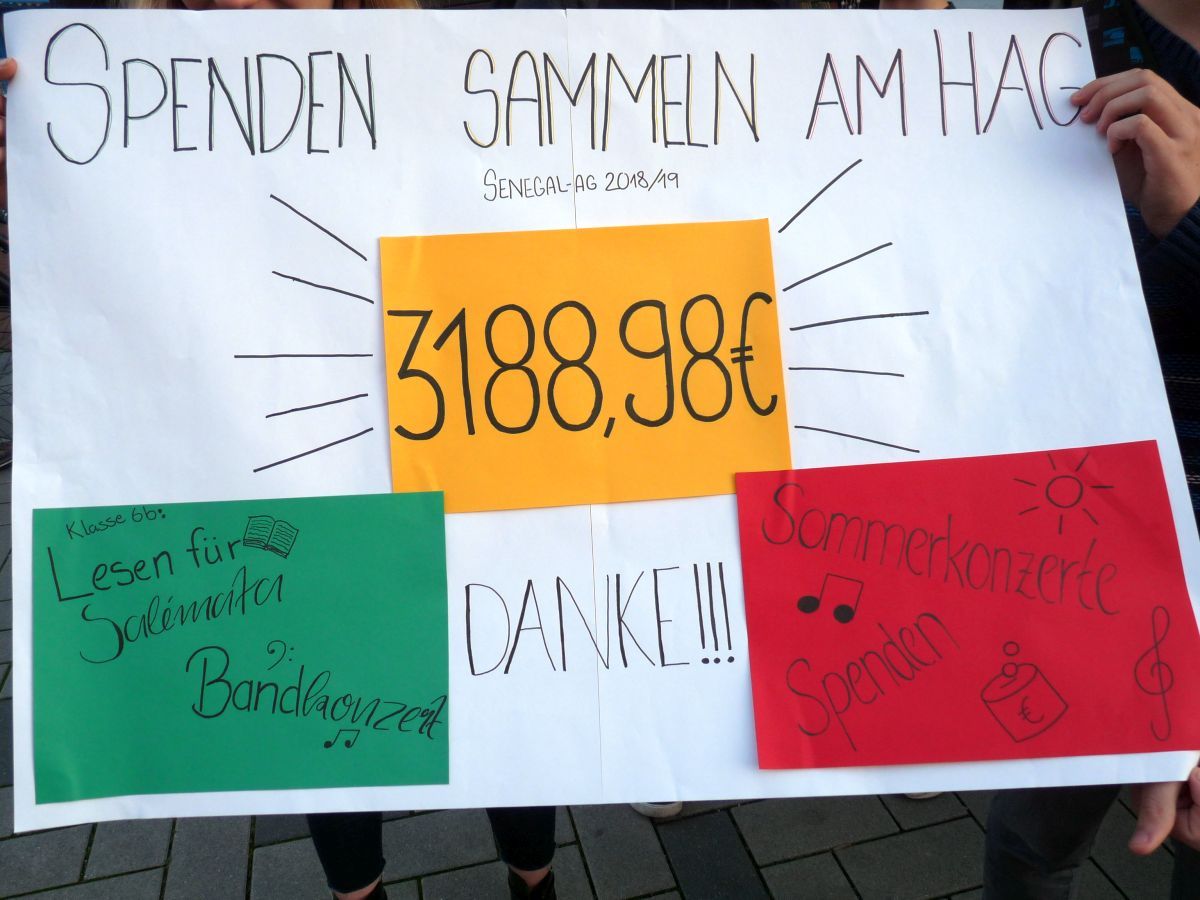 SPENDEN SAMMELN AM HAG
SENEGAL-AG 2018/19
3188,98€
Klasse 6b:
Lesen für
Salémata
Bandkonzert
DANKE!!!
Sommerkonzerte
Spenden
€